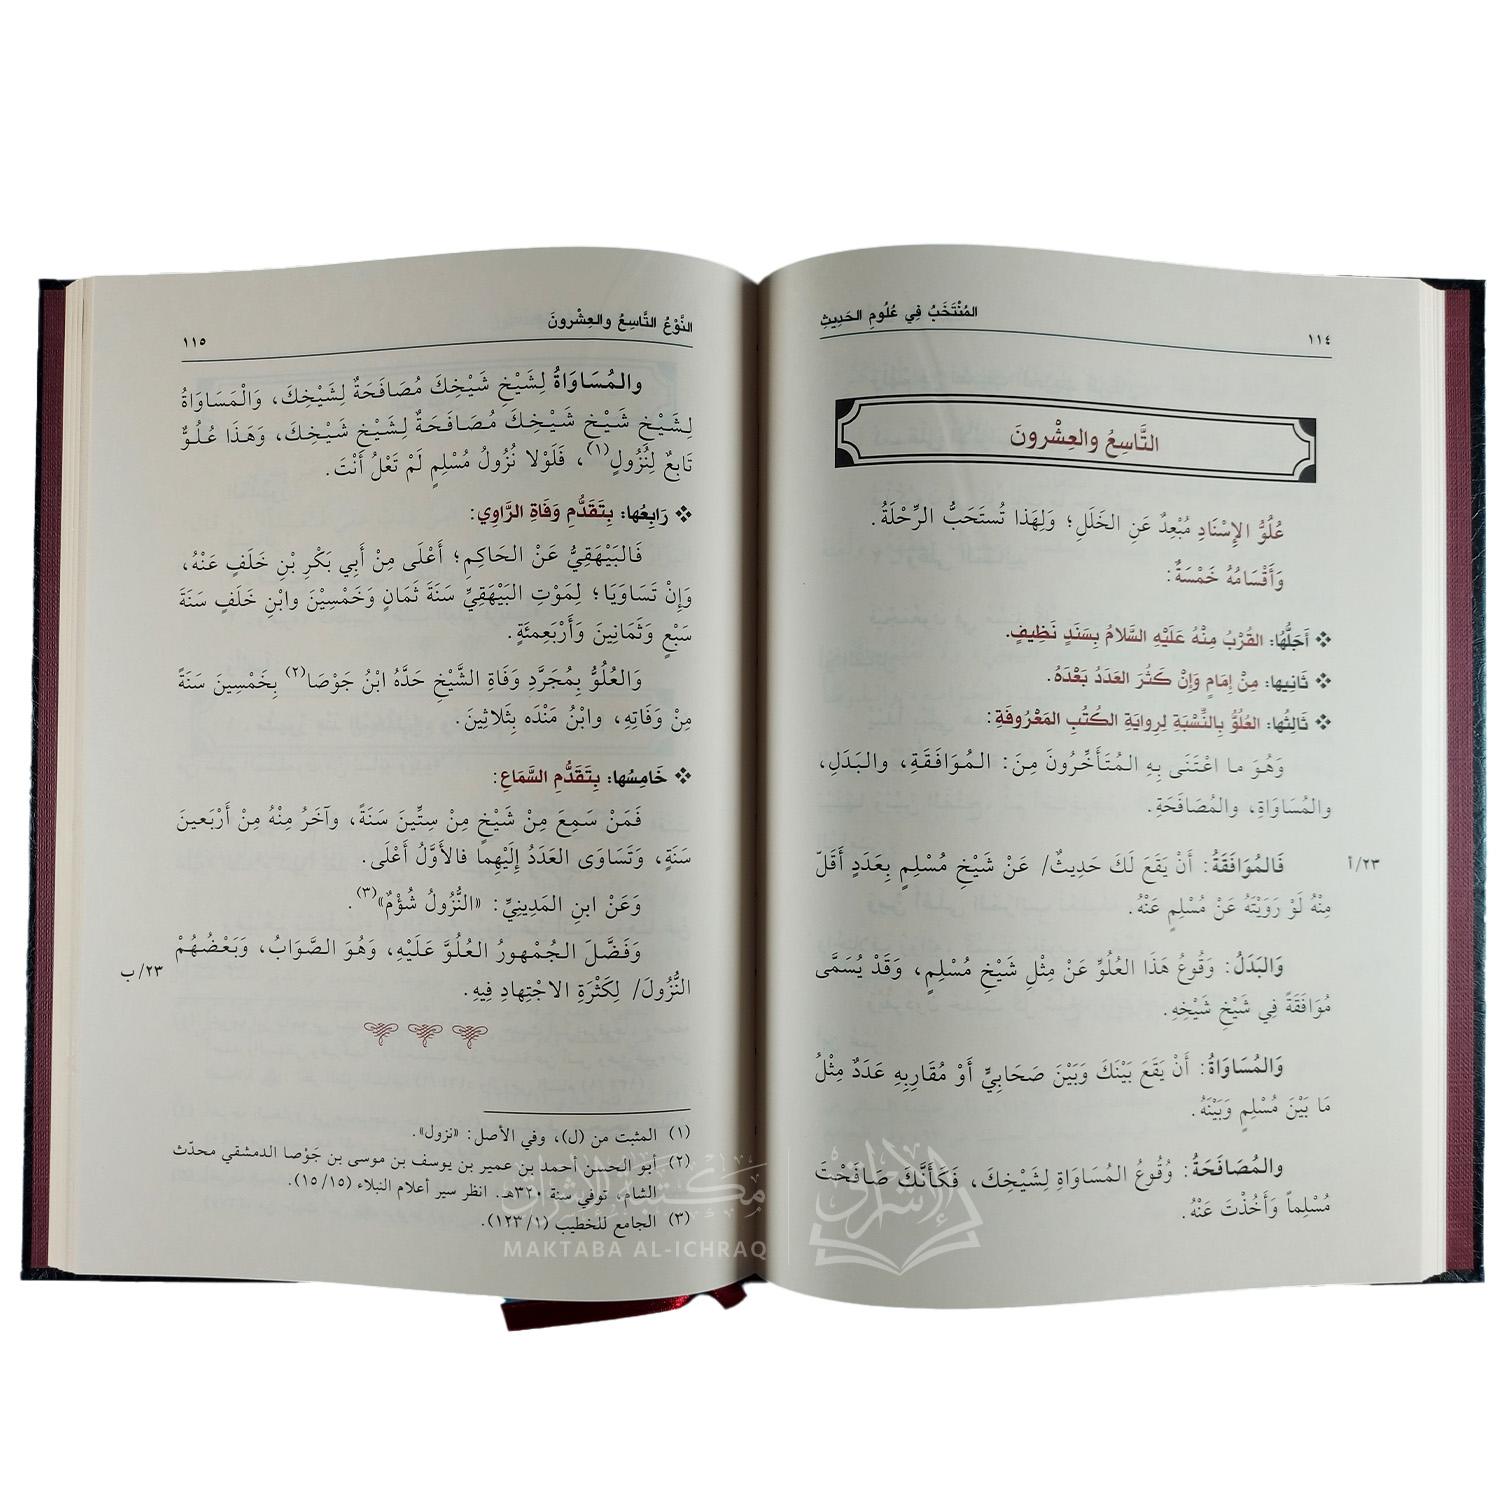 المُنْتَخَبُ فِي عُلُومِ الحَدِيثِ
١١٤
التَّاسِعُ والعِشْرونَ
عُلُوُّ الإِسْنَادِ مُبْعِدٌ عَنِ الخَلَلِ؛ وَلِهَذا تُستَحَبُّ الرِّحْلَةُ.
وَأَقْسَامُهُ خَمْسَةٌ:
❖ أَجَلُّهَا: القُرْبُ مِنْهُ عَلَيْهِ السَّلامُ بِسَنَدٍ نَظِيفٍ.
❖ ثَانِيها: مِنْ إِمَامٍ وَإِنْ كَثُرَ العَدَدُ بَعْدَهُ.
❖ ثَالِثُها: العُلُوُّ بِالنِّسْبَةِ لِرِوايَةِ الكُتُبِ المَعْرُوفَةِ:
وَهُوَ ما اعْتَنَى بِهِ المُتَأَخِّرُونَ مِنَ: المُوَافَقَةِ، والبَدَلِ،
والمُسَاوَاةِ، والمُصَافَحَةِ.
فَالمُوَافَقَةُ: أَنْ يَقَعَ لَكَ حَدِيثٌ/ عَنْ شَيْخِ مُسْلِمٍ بِعَدَدٍ أَقَلّ
٢٣/أ
مِنْهُ لَوْ رَوَيْتَهُ عَنْ مُسْلِمٍ عَنْهُ.
وَالبَدَلُ: وَقُوعُ هَذَا العُلُوِّ عَنْ مِثْلِ شَيْخِ مُسْلِمٍ، وَقَدْ يُسَمَّى
مُوَافَقَةً فِي شَيْخِ شَيْخِهِ.
وَالمُسَاوَاةُ: أَنْ يَقَعَ بَيْنَكَ وَبَيْنَ صَحَابِيٍّ أَوْ مُقَارِبِهِ عَدَدٌ مِثْلُ
مَا بَيْنَ مُسْلِمٍ وَبَيْنَهُ.
والمُصَافَحَةُ: وُقُوعُ المُسَاوَاةِ لِشَيْخِكَ، فَكَأَنَّكَ صَافَحْتَ
مُسْلِماً وَأَخُذْتَ عَنْهُ.
النَّوْعُ التَّاسِعُ والعِشْرونَ
١١٥
والمُسَاوَاةُ لِشَيْخِ شَيْخِكَ مُصَافَحَةٌ لِشَيْخِكَ، وَالْمَسَاوَاةُ
لِشَيْخِ شَيْخِ شَيْخِكَ مُصَافَحَةٌ لِشَيْخِ شَيْخِكَ، وَهَذَا عُلُوٌّ
تَابِعٌ لِنُزُولٍ(١)، فَلَوْلا نُزُولُ مُسْلِمٍ لَمْ تَعْلُ أَنْتَ.
❖ رَابِعُها: بِتَقَدُّمِ وَفَاةِ الرَّاوِي:
فَالبَيْهَقِيُّ عَنْ الحَاكِمِ؛ أَعْلَى مِنْ أَبِي بَكْرِ بْنِ خَلَفٍ عَنْهُ،
وَإِنْ تَسَاوَيَا؛ لِمَوْتِ البَيْهَقِيِّ سَنَةَ ثَمَانٍ وَخَمْسِيْنَ وابْنِ خَلَفٍ سَنَةَ
سَبْعٍ وَثَمَانِينَ وَأَرْبَعِمئَةٍ.
وَالعُلُوُّ بِمُجَرَّدِ وَفَاةِ الشَّيْخِ حَدَّهُ ابْنُ جَوْصَا(٢) بِخَمْسِينَ سَنَةً
مِنْ وَفَاتِهِ، وابْنُ مَنْدَه بِثَلاثِينَ.
❖ خَامِسُها: بِتَقَدُّمِ السَّمَاعِ:
فَمَنْ سَمِعَ مِنْ شَيْخٍ مِنْ سِتِّينَ سَنَةً، وآخَرُ مِنْهُ مِنْ أَرْبَعينَ
سَنَةٍ، وَتَسَاوَى العَدَدُ إِلَيْهِما فالأوَّلُ أَعْلَى.
وَعَنْ ابنِ المَدِينِيِّ: «النُّزُولُ شُؤْمٌ»(٣).
وَفَضَّلَ الجُمْهورُ العُلُوَّ عَلَيْهِ، وَهُوَ الصَّوَابُ، وَبَعْضُهُمْ
٢٣/ب
النُّزُولَ/ لِكَثْرَةِ الاجْتِهادِ فِيهِ.
(١) المثبت من (ل)، وفي الأصل: «نزول».
(٢) أبو الحسن أحمد بن عمير بن يوسف بن موسى بن جَوْصا الدمشقي محدّث
الشام، توفي سنة ٣٢٠هـ. انظر سير أعلام النبلاء (١٥/١٥).
(٣) الجامع للخطيب (١٢٣/١).
مكتبة الإشراق
الإشراق
MAKTABA AL-ICHRAQ